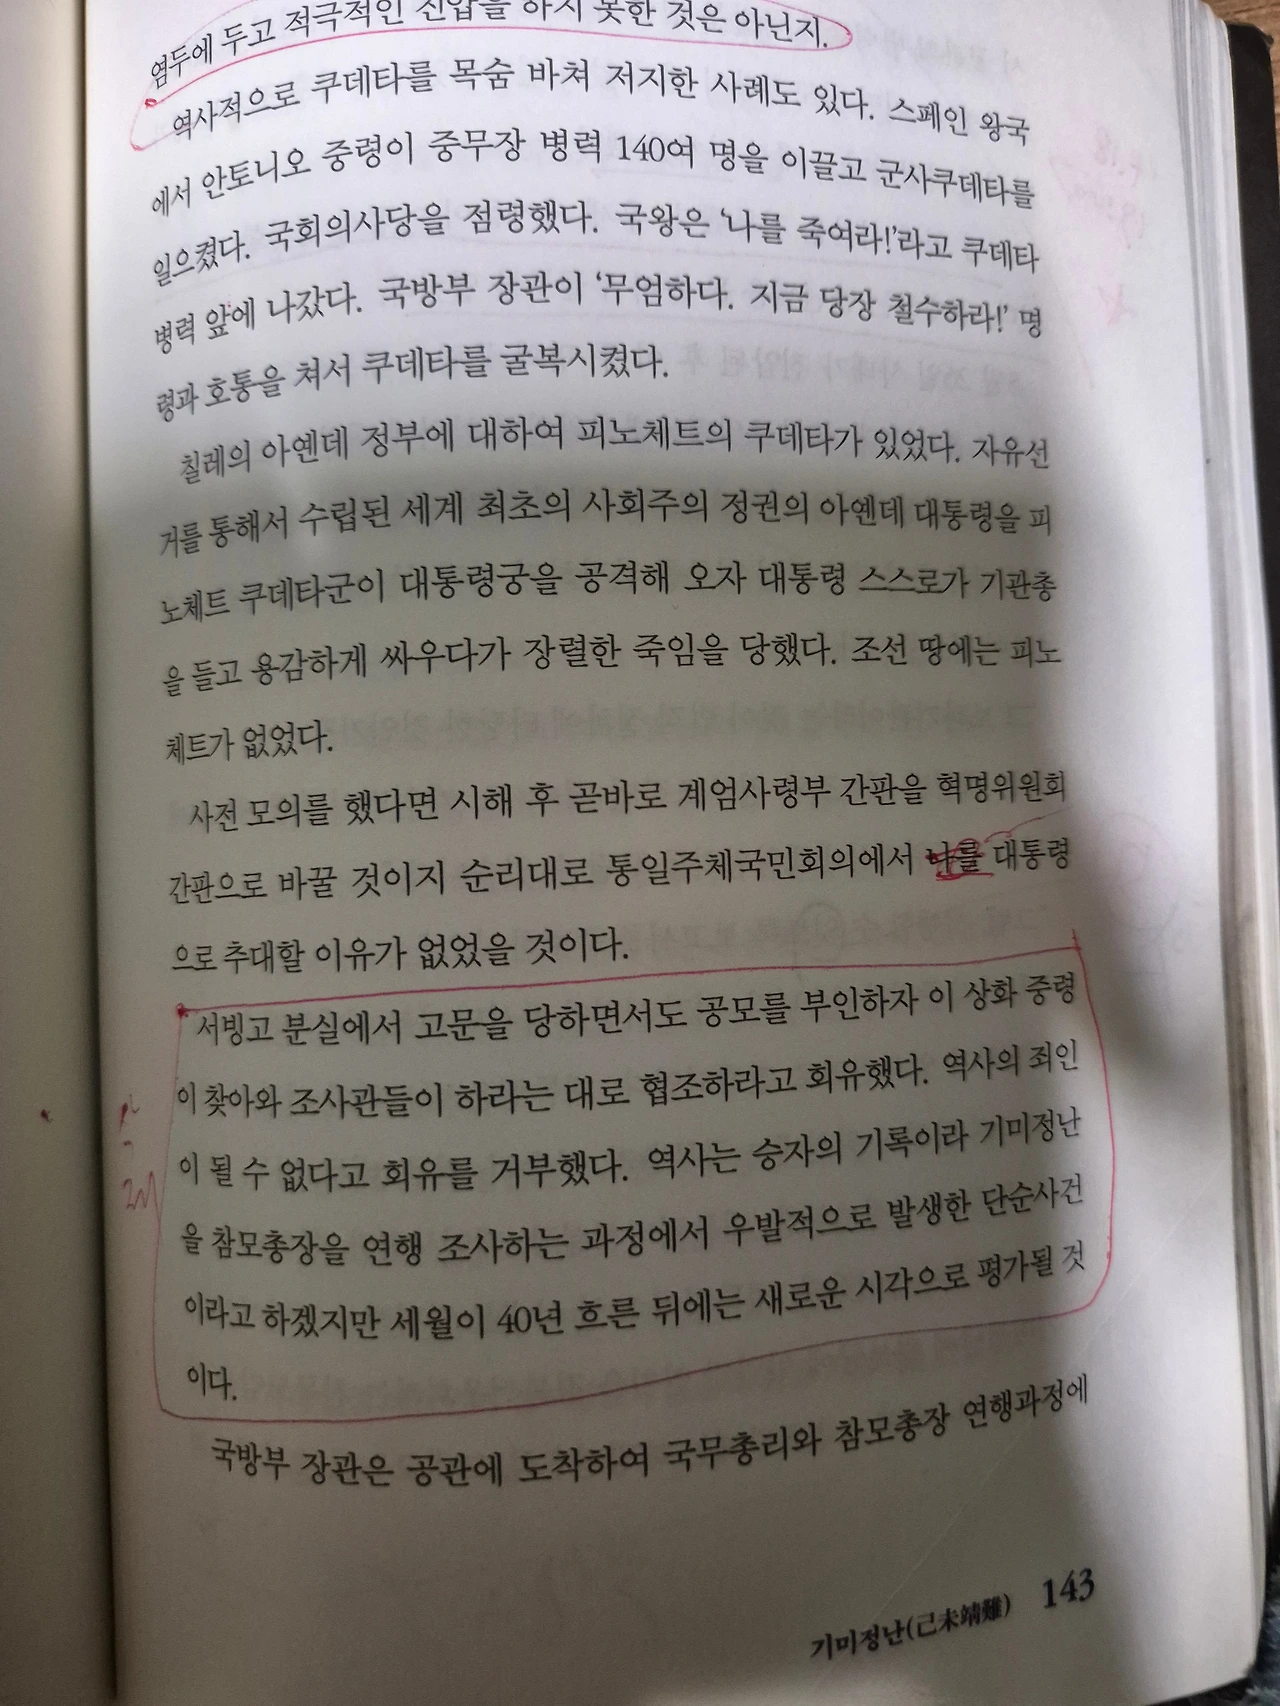 염두에 두고 적극적인 진압을 하지 못한 것은 아닌지.
역사적으로 쿠데타를 목숨 바쳐 저지한 사례도 있다. 스페인 왕국
에서 안토니오 중령이 중무장 병력 140여 명을 이끌고 군사쿠데타를
일으켰다. 국회의사당을 점령했다. 국왕은 ‘나를 죽여라!’라고 쿠데타
병력 앞에 나갔다. 국방부 장관이 ‘무엄하다. 지금 당장 철수하라!’ 명
령과 호통을 쳐서 쿠데타를 굴복시켰다.
칠레의 아옌데 정부에 대하여 피노체트의 쿠데타가 있었다. 자유선
거를 통해서 수립된 세계 최초의 사회주의 정권의 아옌데 대통령을 피
노체트 쿠데타군이 대통령궁을 공격해 오자 대통령 스스로가 기관총
을 들고 용감하게 싸우다가 장렬한 죽임을 당했다. 조선 땅에는 피노
체트가 없었다.
사전 모의를 했다면 시해 후 곧바로 계엄사령부 간판을 혁명위원회
간판으로 바꿀 것이지 순리대로 통일주체국민회의에서 나를 대통령
으로 추대할 이유가 없었을 것이다.
서빙고 분실에서 고문을 당하면서도 공모를 부인하자 이 상화 중령
이 찾아와 조사관들이 하라는 대로 협조하라고 회유했다. 역사의 죄인
이 될 수 없다고 회유를 거부했다. 역사는 승자의 기록이라 기미정난
을 참모총장을 연행 조사하는 과정에서 우발적으로 발생한 단순사건
이라고 하겠지만 세월이 40년 흐른 뒤에는 새로운 시각으로 평가될 것
이다.
국방부 장관은 공관에 도착하여 국무총리와 참모총장 연행과정에
기미정난(己未靖難) 143